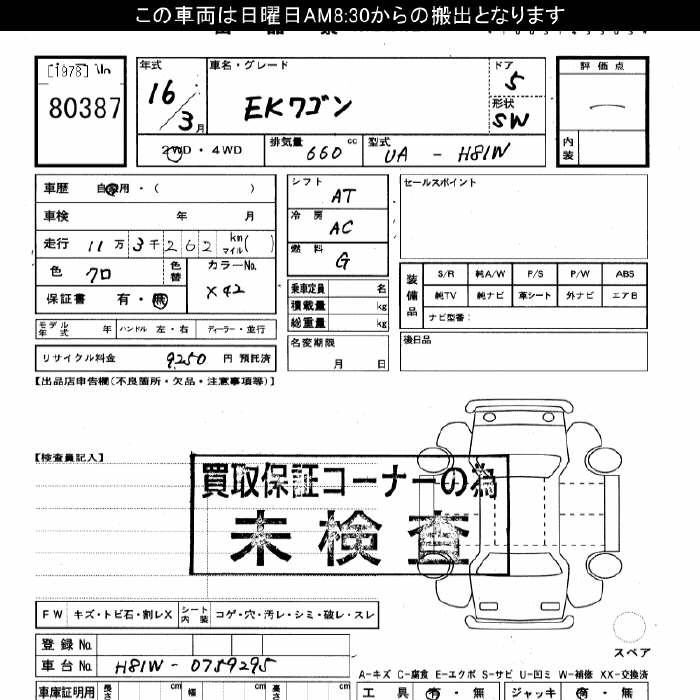 この車両は日曜日AM8:30からの搬出となります
[1978]
80387
年式 16/3月
車名・グレード EKワゴン
ドア 5
形状 SW
評価点 —
内装
2WD・4WD
排気量 660 cc
型式 UA - H81W
車歴 自家用・( )
車検 年 月
走行 11万3千262 km マイル( )
色 クロ 色替
カラーNo. X42
保証書 有・無
モデル年式 年 ハンドル 左・右 ディーラー・並行
リサイクル料金 9250 円 預託済
シフト AT
冷房 AC
燃料 G
乗車定員 名
積載量 kg
総重量 kg
名変期限 月 日
セールスポイント
装備品
S/R 純A/W P/S P/W ABS
純TV 純ナビ 革シート 外ナビ エアB
ナビ型番:
後日品
【出品店申告欄(不良箇所・欠品・注意事項等)】
【検査員記入】
買取保証コーナーの為
未検査
FW キズ・トビ石・割レX シート内装 コゲ・穴・汚レ・シミ・破レ・スレ
登録No.
車台No. H81W - 0759295
スペア
A-キズ C-腐食 E-エクボ S-サビ U-凹ミ W-補修 XX-交換済
車庫証明用 長さ cm 幅 cm 高さ cm
工具 有・無 ジャッキ 有・無